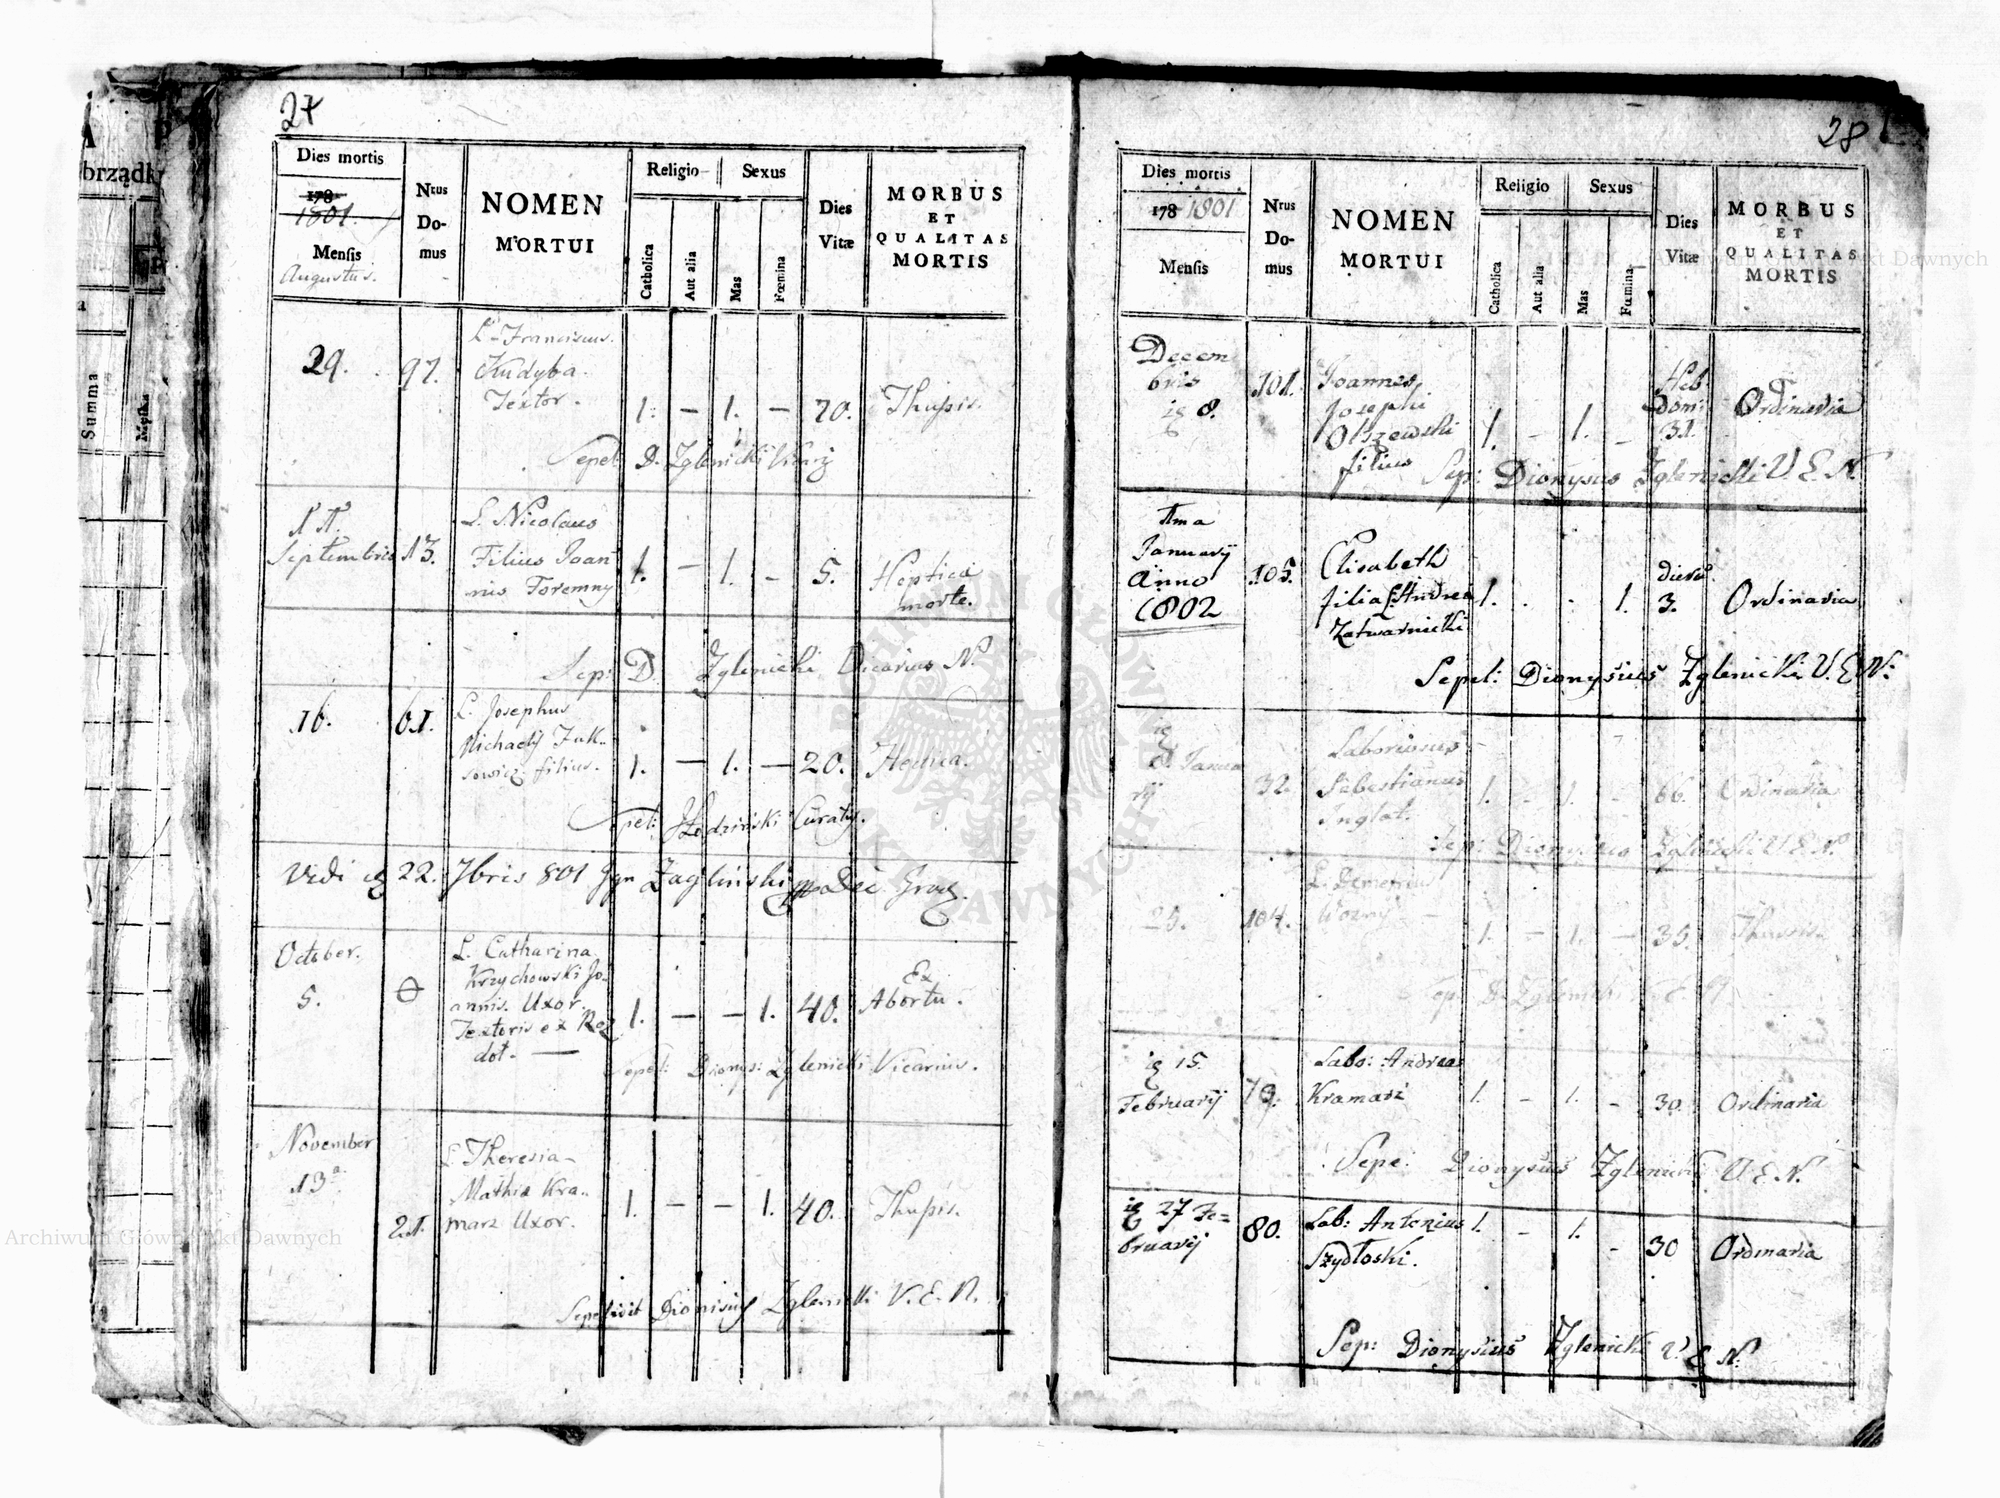 27
Dies mortis
178
1801.
Mensis
Augustus.
Nrus
Do-
mus
NOMEN
MORTUI
Religio
Sexus
Catholica
Aut alia
Mas
Fœmina
Dies
Vitæ
MORBUS
ET
QUALITAS
MORTIS
29. 97. L. Franciscus
Kudyba.
Textor. 1. – 1. – 70. Thusis.
Sepel: D. Zglenicki
Septembris 13. L. Nicolaus
Filius Joan
nis Foremny 1. – 1. – 5. Heptica
morte.
Sep: D. Zglenicki Vicarius N.
16. 61. L. Josephus
Michaelis Juk..
sowicz filius. 1. – 1. – 20. Hectica.
Sepel: Łodziński Curatus.
Vidi 22. 7bris 801 Zagliński Dec.
October.
5. L. Catharina
Krzychowski Jo.
annis. Uxor.
Textoris ex Roz
dot. — 1. – – 1. 40. Ex
Abortu.
Sepel: Dionys: Zglenicki Vicarius.
November
13a. 21. L. Theresia
Mathiæ Kra..
marz Uxor. 1. – – 1. 40. Thusis.
Sepelivit Dionisius Zglenicki V. E. N.
28
Dies mortis
178 1801
Mensis
Nrus
Do-
mus
NOMEN
MORTUI
Religio
Sexus
Catholica
Aut alia
Mas
Fœmina
Dies
Vitæ
MORBUS
ET
QUALITAS
MORTIS
Decem
bris
8. 101. Joannes
Josephi
Olszewski
filius 1. – 1. – Heb
dom:
31. Ordinaria
Sep: Dionysus Zglenicki V. E. N.
Januarij
Anno
1802 105. Elisabeth
filia L. Andreæ
Zatwarnicki 1. . . 1. dierum
3. Ordinaria
Sepel: Dionysius Zglenicki V. E. N.
8. Janua
rij 32. Laboriosus
Sebestianus
Inglat. 1. – 1. – 66. Ordinaria
Sep: Dionysius Zglenicki V E N.
25. 104. L. Demetrius
Wozny 1. – 1. – 35. Thusis.
Sep: D. Zglenicki V. E. N.
15.
Februarij 79. Labo: Andreas
Kramarz 1. – 1. – 30. Ordinaria
Sepe: Dionysius Zglenicki V. E. N.
27 Fe=
bruarij 80. Lab: Antonius
Szydłoski. 1. – 1. – 30 Ordinaria
Sep: Dionysius Zglenicki V. E. N.
brządk
Summa
Męska
Archiwum Główne Akt Dawnych
ARCHIWUM GŁÓWNE AKT DAWNYCH